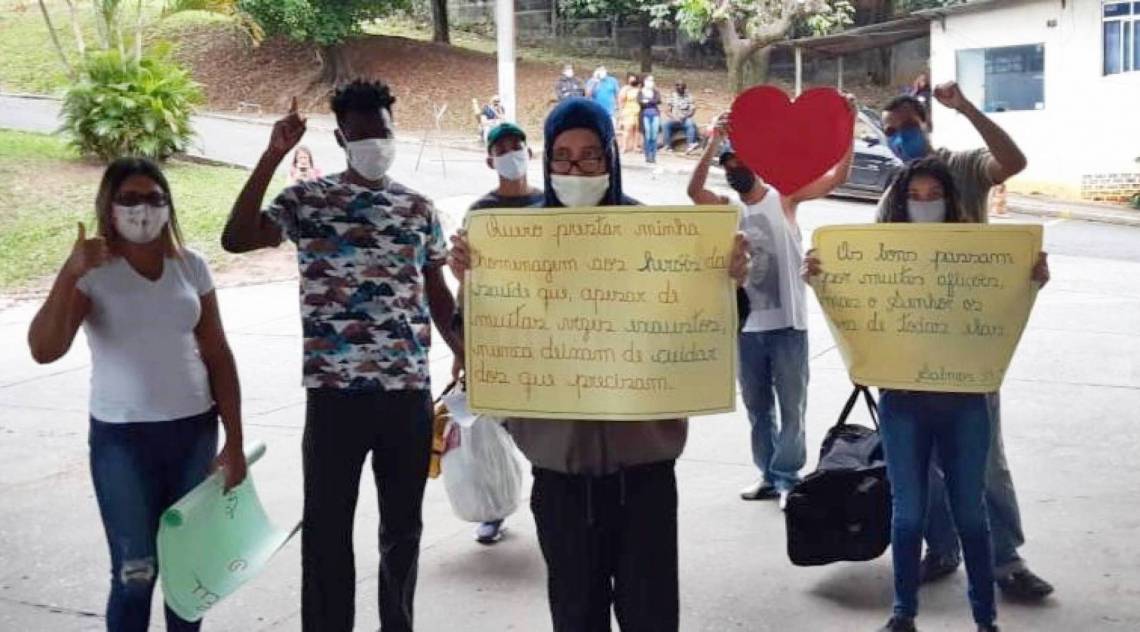 Quero prestar minha
homenagem aos heróis da
saúde que, apesar de
muitas vezes exaustos,
nunca deixam de cuidar
dos que precisam.
Os bons passam
por muitas aflições,
mas o Senhor os
de todas elas
Salmos